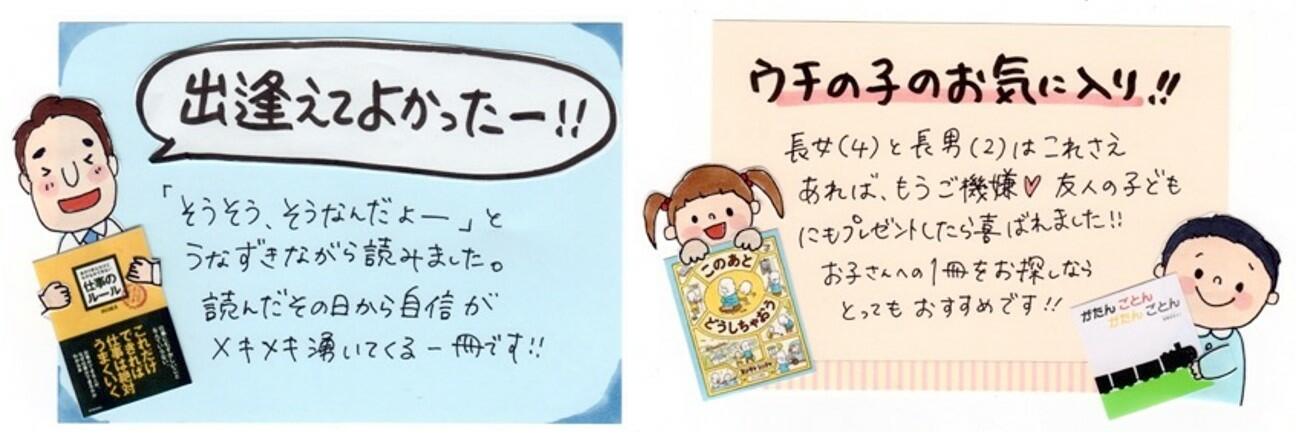 出逢えてよかったー!!
「そうそう、そうなんだよー」と
うなずきながら読みました。
読んだその日から自信が
メキメキ湧いてくる一冊です!!
仕事の
ルール
これだけ
できれば
仕事は絶対
うまくいく
ウチの子のお気に入り!!
長女(4)と長男(2)はこれさえ
あれば、もうご機嫌♥ 友人の子ども
にもプレゼントしたら喜ばれました!!
お子さんへの1冊をお探しなら
とってもおすすめです!!
このあと
どうしちゃおう
がたん ごとん
がたん ごとん